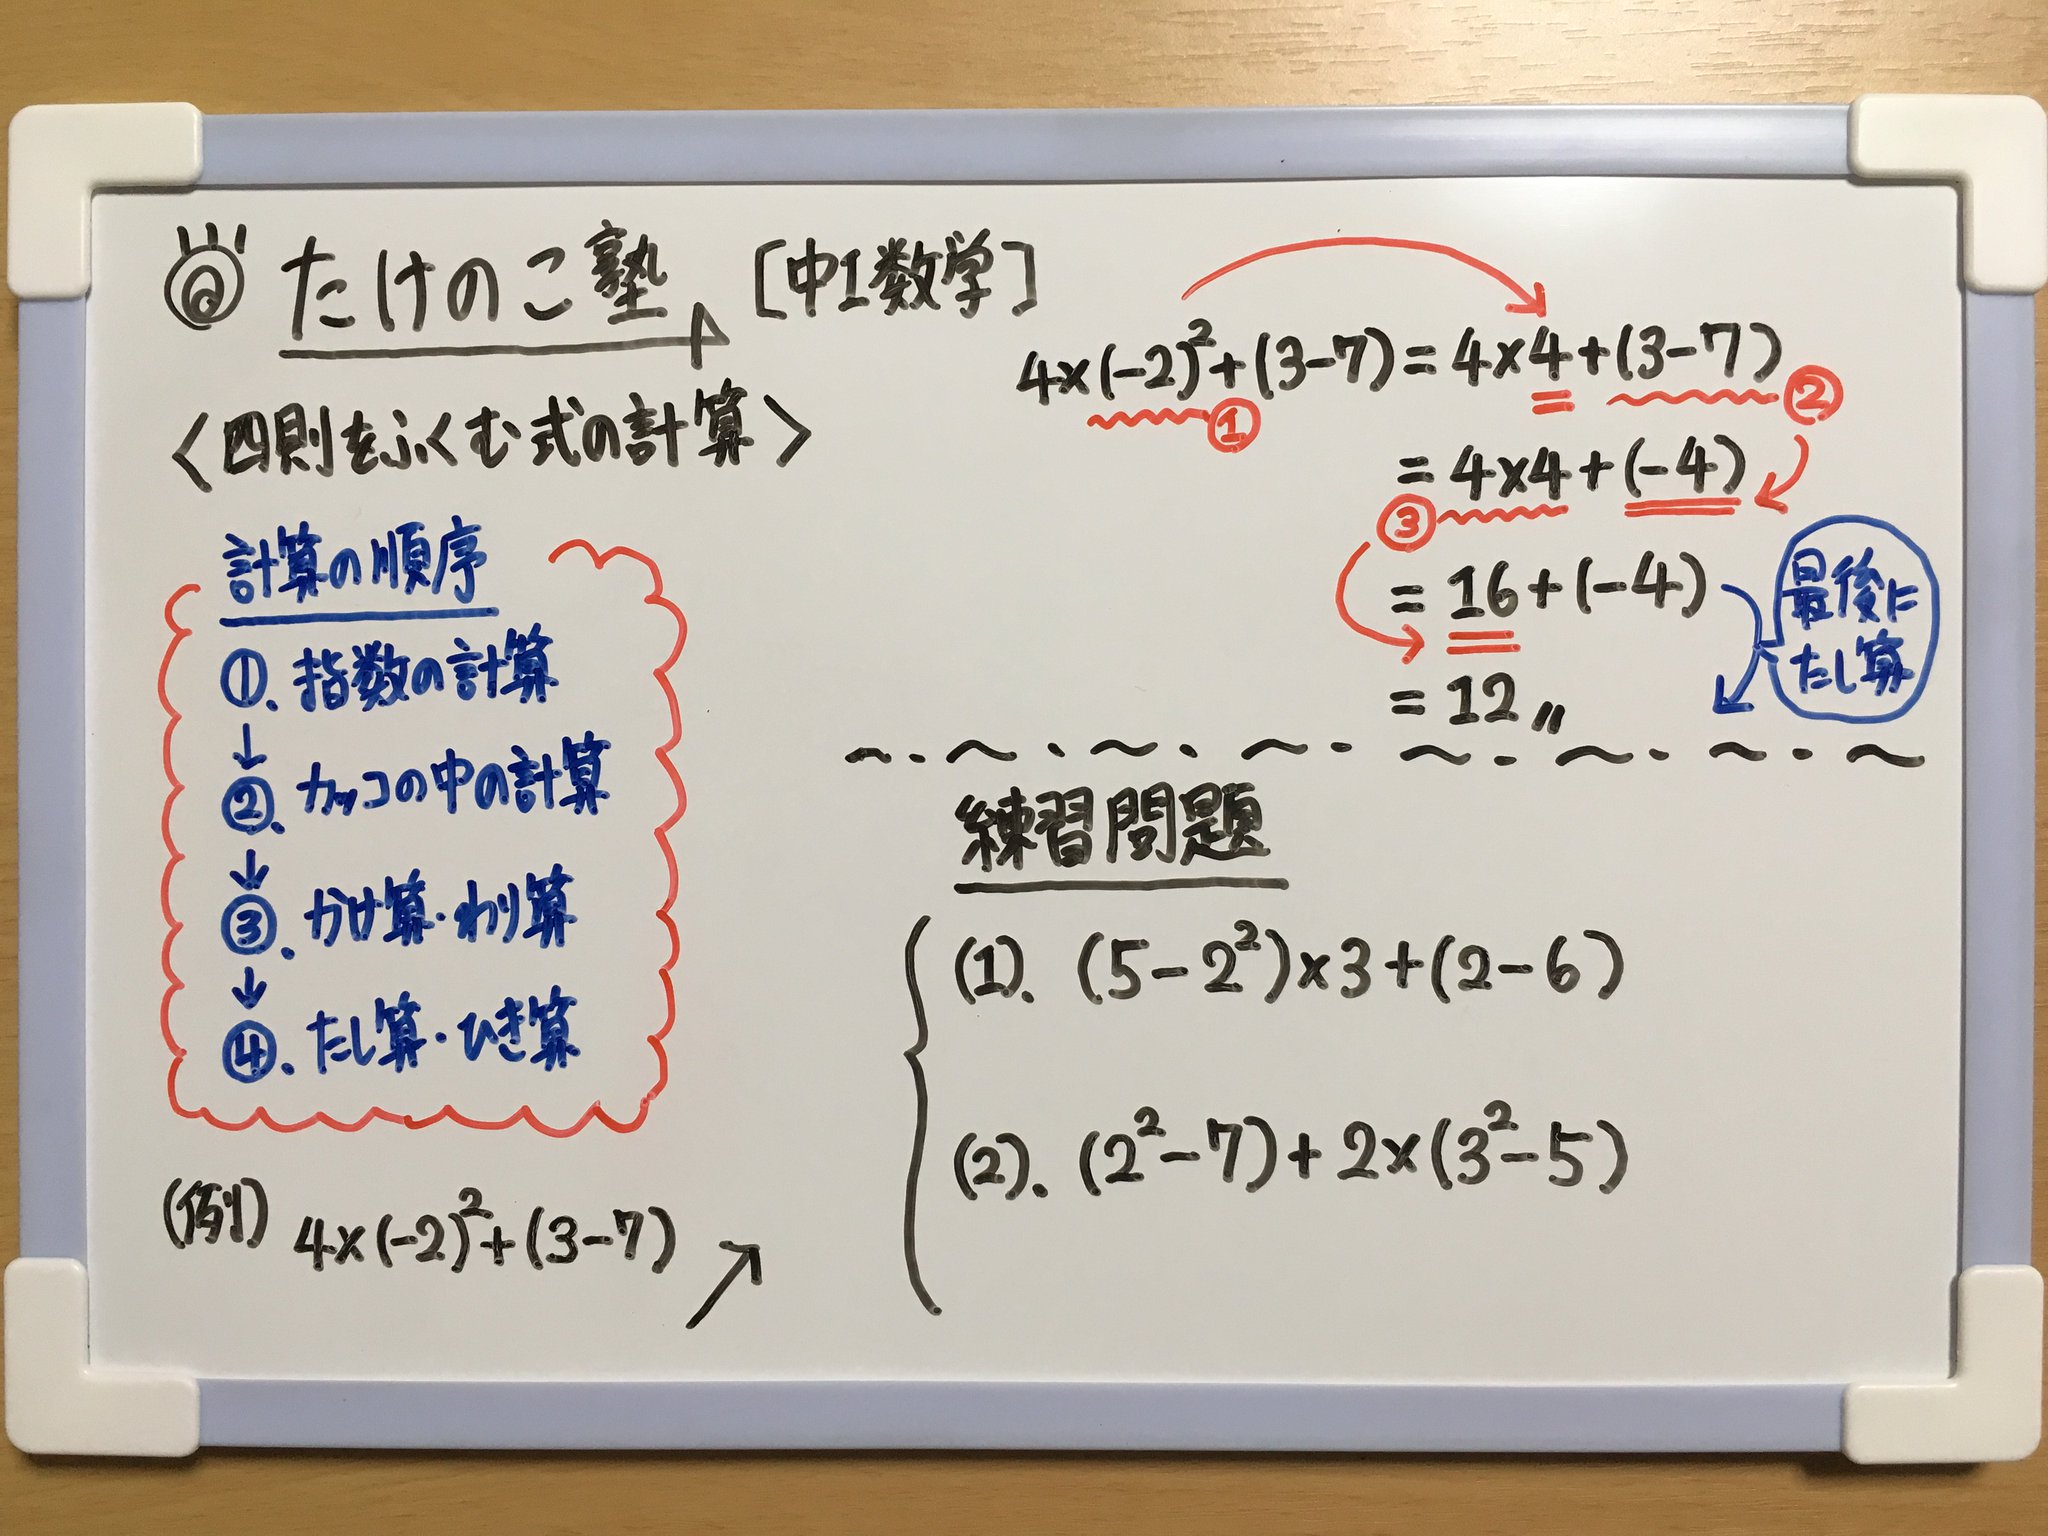 たけのこ塾 [中1数学]
<四則をふくむ式の計算>
計算の順序
①. 指数の計算
↓
②. カッコの中の計算
↓
③. かけ算・わり算
↓
④. たし算・ひき算
(例) 4×(-2)²+(3-7)
4×(-2)²+(3-7)=4×4+(3-7)
① ②
=4×4+(-4)
③
=16+(-4)
最後に
たし算
=12〃
練習問題
(1). (5-2²)×3+(2-6)
(2). (2²-7)+2×(3²-5)